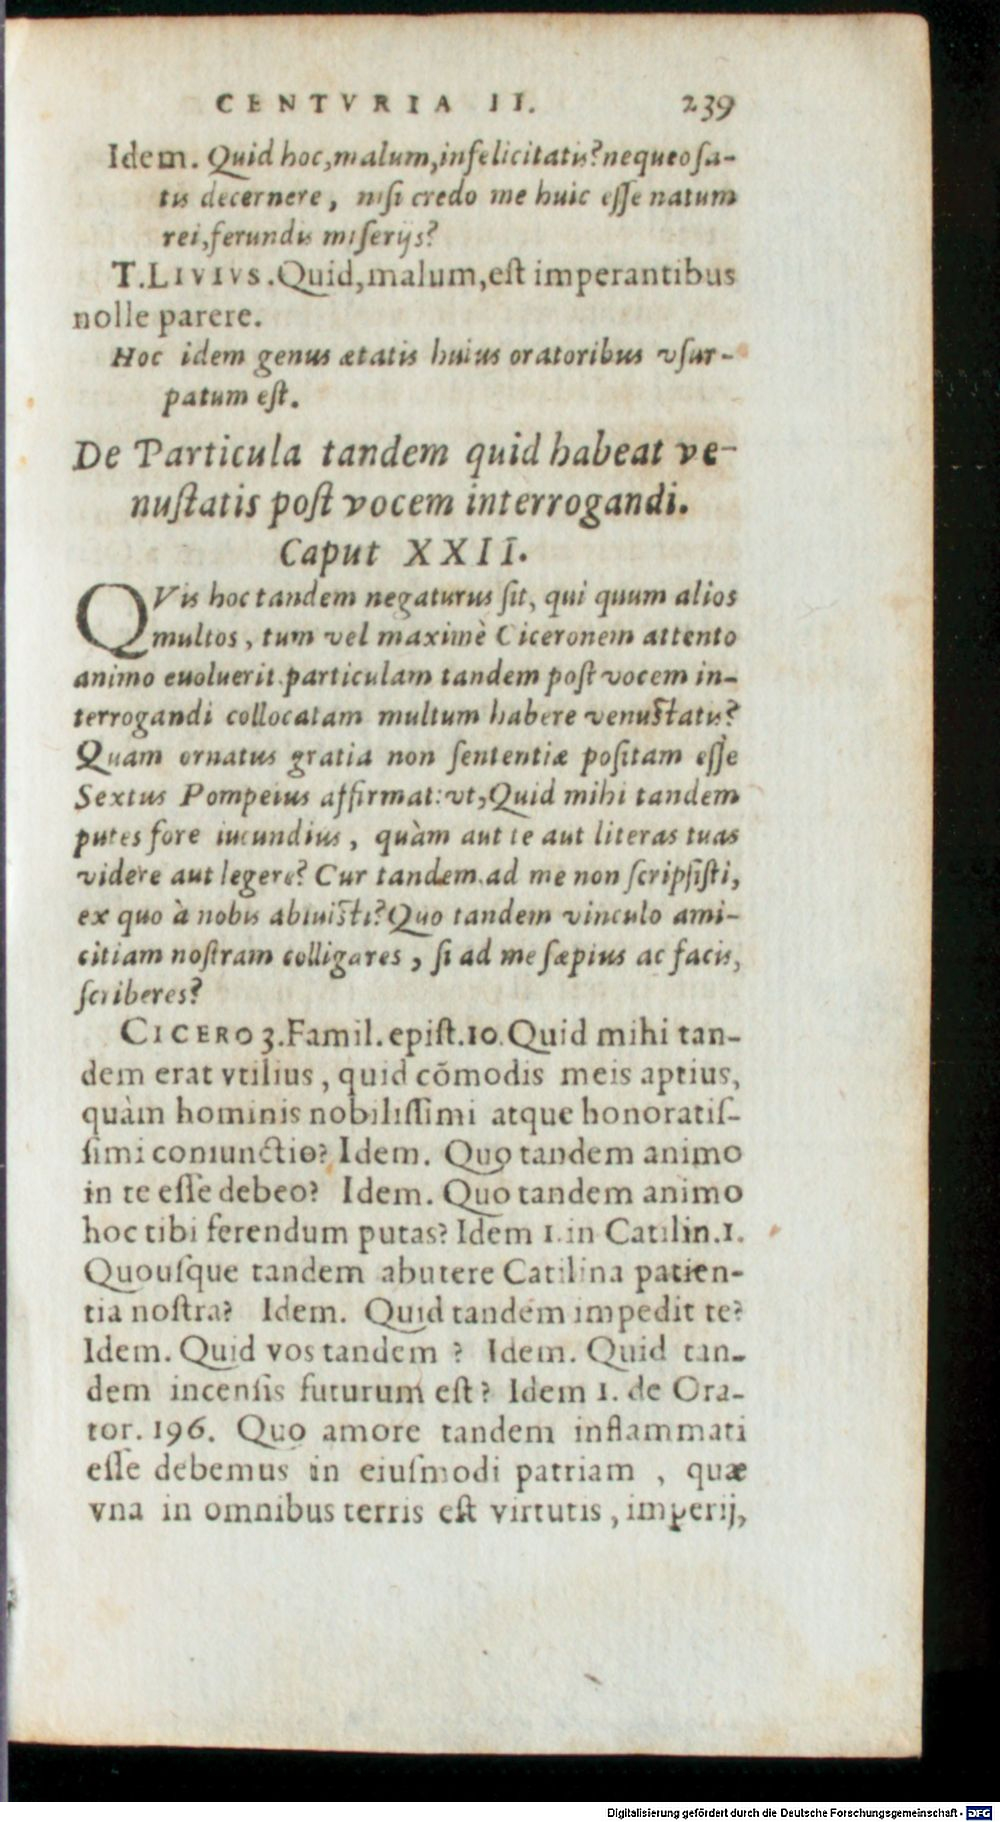 CENTVRIA II. 239
Idem. Quid hoc, malum, infelicitatis? nequeo sa-
tis decernere, nisi credo me huic esse natum
rei, ferundis miserijs?
T. LIVIVS. Quid, malum, est imperantibus
nolle parere.
Hoc idem genus ætatis huius oratoribus vsur-
patum est.
De Particula tandem quid habeat ve-
nustatis post vocem interrogandi.
Caput XXII.
QVis hoc tandem negaturus sit, qui quum alios
multos, tum vel maximè Ciceronem attento
animo euoluerit particulam tandem post vocem in-
terrogandi collocatam multum habere venustatis?
Quam ornatus gratia non sententiæ positam esse
Sextus Pompeius affirmat: vt, Quid mihi tandem
putes fore iucundius, quàm aut te aut literas tuas
videre aut legere? Cur tandem ad me non scripsisti,
ex quo à nobis abiuisti? Quo tandem vinculo ami-
citiam nostram colligares, si ad me sæpius ac facis,
scriberes?
CICERO 3. Famil. epist. 10. Quid mihi tan-
dem erat vtilius, quid cõmodis meis aptius,
quàm hominis nobilissimi atque honoratis-
simi coniunctio? Idem. Quo tandem animo
in te esse debeo? Idem. Quo tandem animo
hoc tibi ferendum putas? Idem 1. in Catilin. 1.
Quousque tandem abutere Catilina patien-
tia nostra? Idem. Quid tandem impedit te?
Idem. Quid vos tandem? Idem. Quid tan-
dem incensis futurum est? Idem 1. de Ora-
tor. 196. Quo amore tandem inflammati
esse debemus in eiusmodi patriam, quæ
vna in omnibus terris est virtutis, imperij,
Digitalisierung gefördert durch die Deutsche Forschungsgemeinschaft - DFG